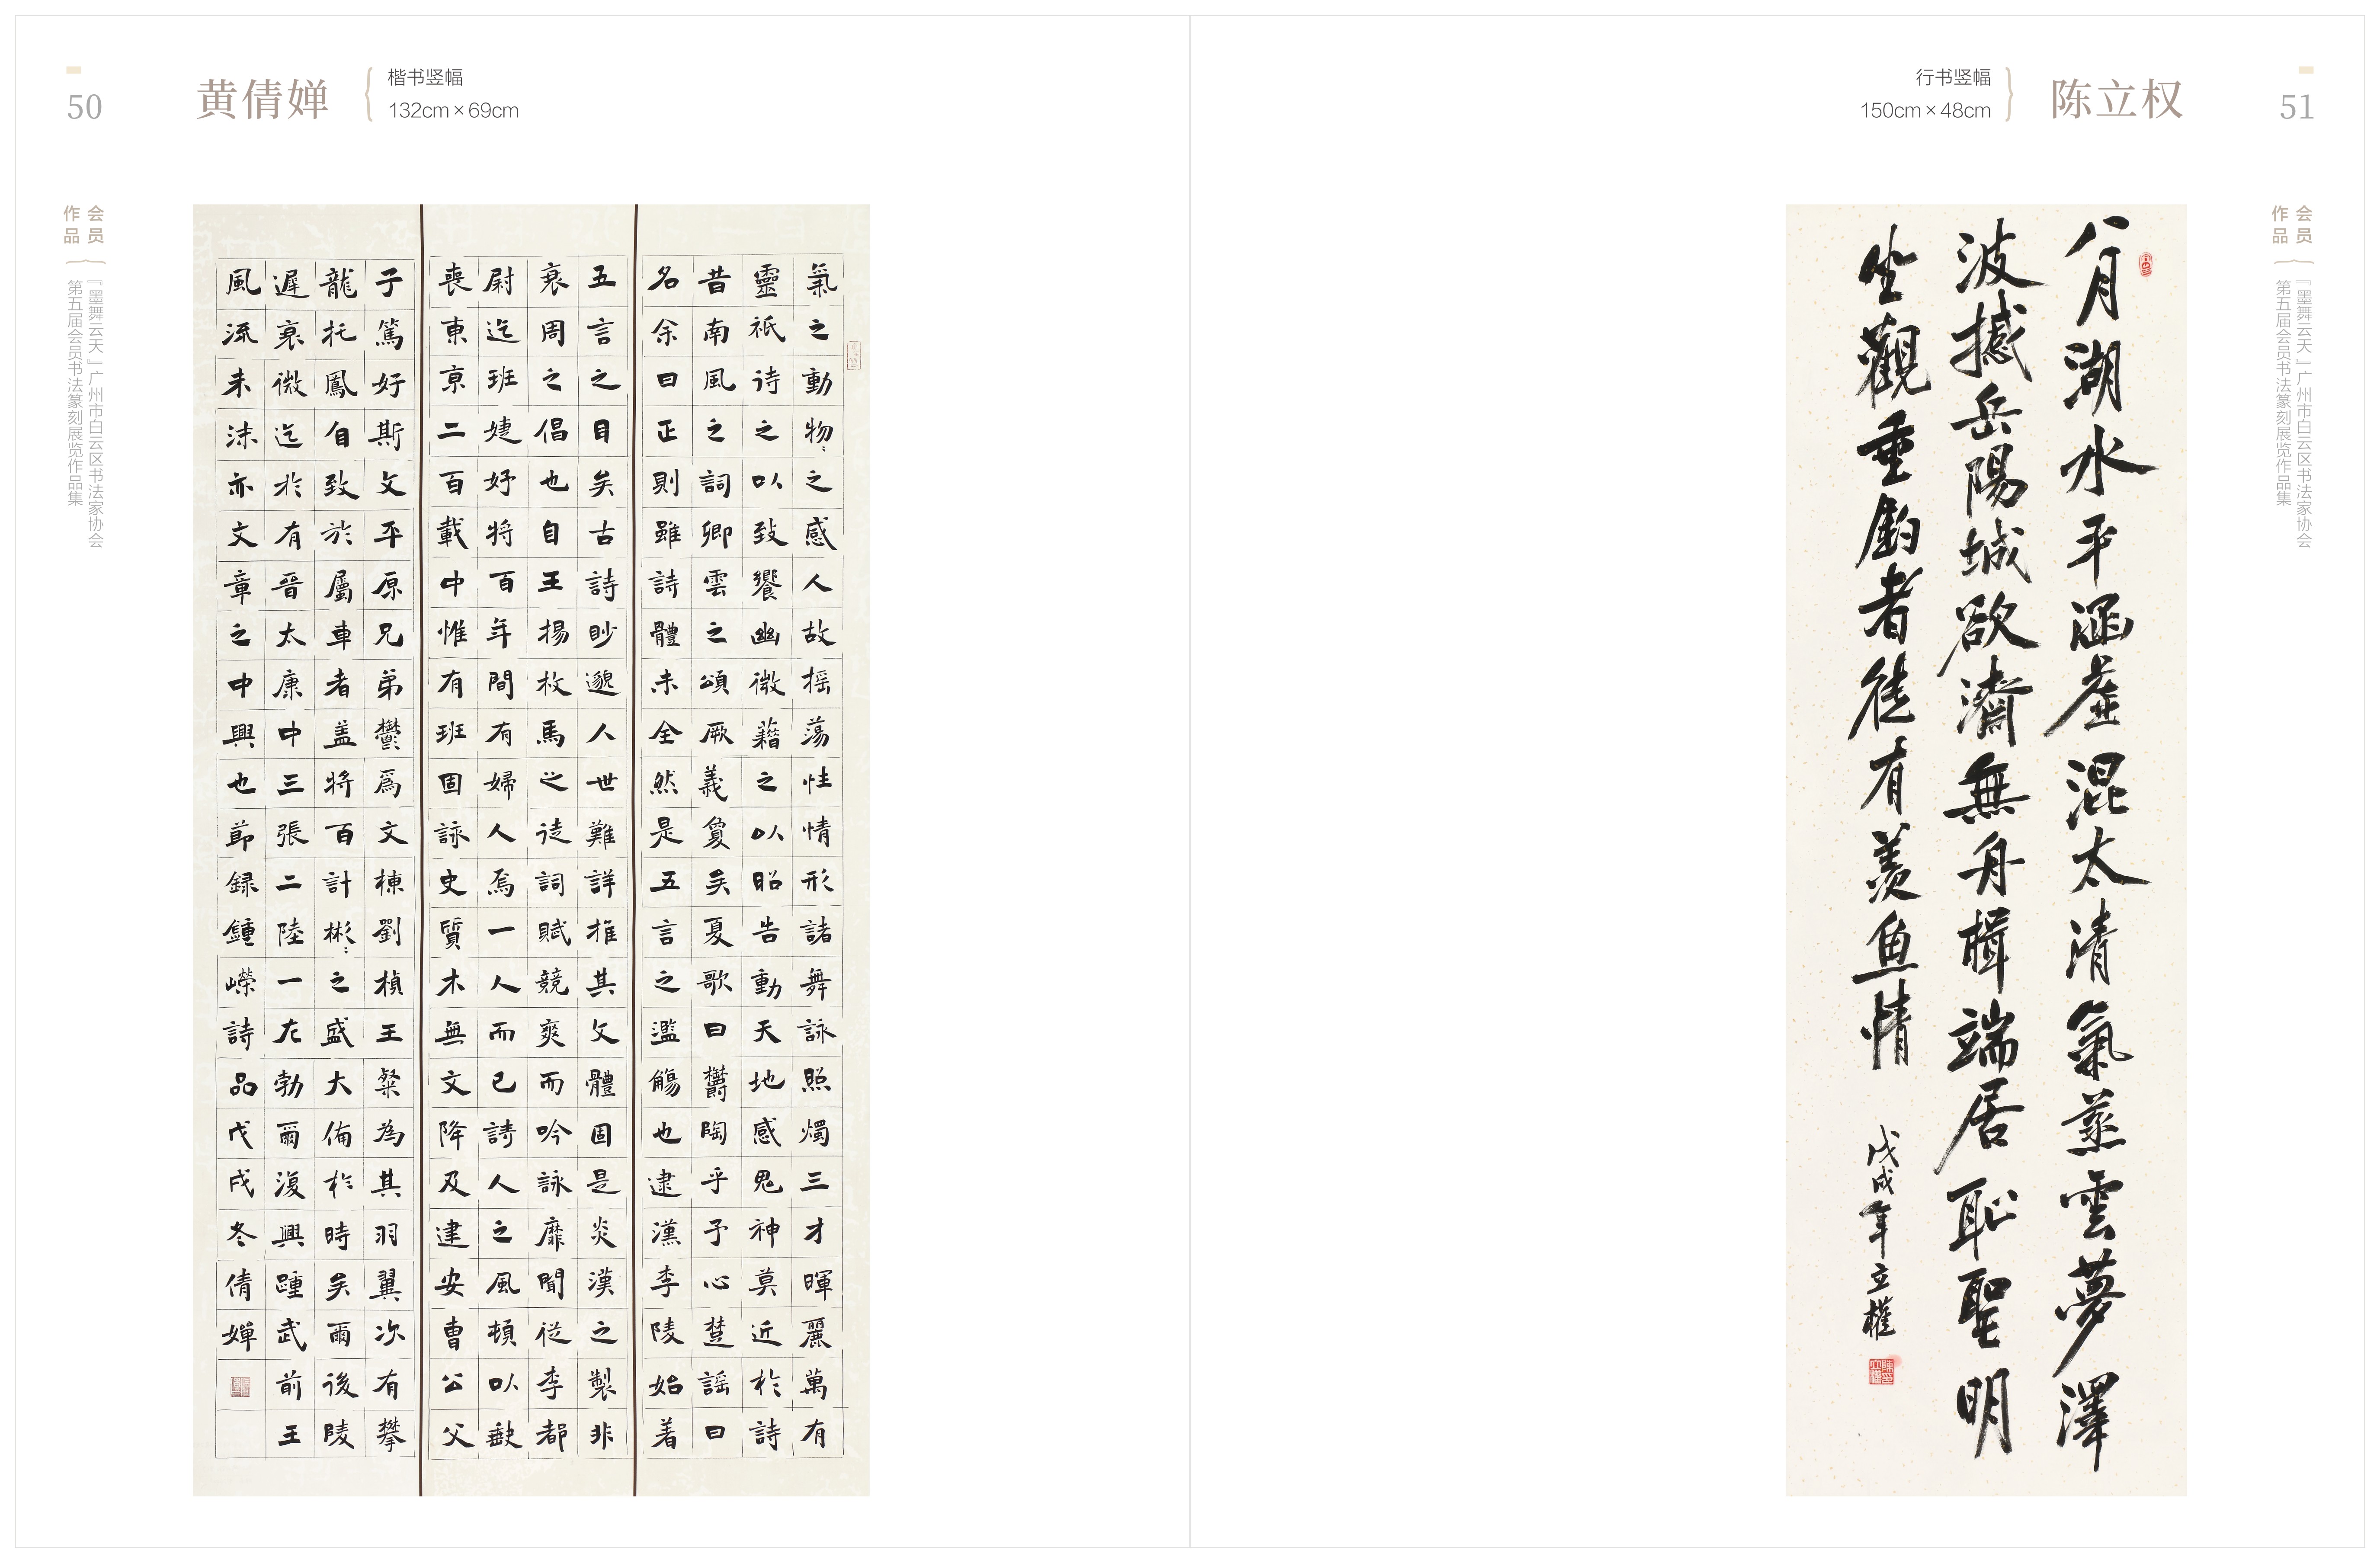 50
黄倩婵
楷书竖幅
132cm×69cm
会员
作品
『墨舞云天』广州市白云区书法家协会
第五届会员书法篆刻展览作品集
氣之動物〻之感人故摇蕩性情形諸舞詠照燭三才暉麗萬有
靈祇待之以致饗幽微藉之以昭告動天地感鬼神莫近於詩
昔南風之詞卿雲之頌厥義敻矣夏歌曰欝陶乎予心楚謡曰
名余曰正則雖詩體未全然是五言之濫觴也逮漢李陵始着
五言之目矣古詩眇邈人世難詳推其文體固是炎漢之製非
衰周之倡也自王揚枚馬之徒詞賦競爽而吟詠靡聞從李都
尉迄班婕妤将百年間有婦人焉一人而已詩人之風頓以缺
喪東京二百載中惟有班固詠史質木無文降及建安曹公父
子篤好斯文平原兄弟鬱爲文棟劉楨王粲為其羽翼次有攀
龍托鳳自致於屬車者盖将百計彬〻之盛大備於時矣爾後陵
遲衰微迄於有晋太康中三張二陸一左勃爾復興踵武前王
風流未沫亦文章之中興也節録鍾嶸詩品戊戌冬倩婵
行书竖幅
150cm×48cm
陈立权
51
会员
作品
『墨舞云天』广州市白云区书法家协会
第五届会员书法篆刻展览作品集
八月湖水平涵虚混太清氣蒸雲夢澤
波撼岳陽城欲濟無舟楫端居耻聖明
坐觀垂釣者徒有羨鱼情
戊戌年立權